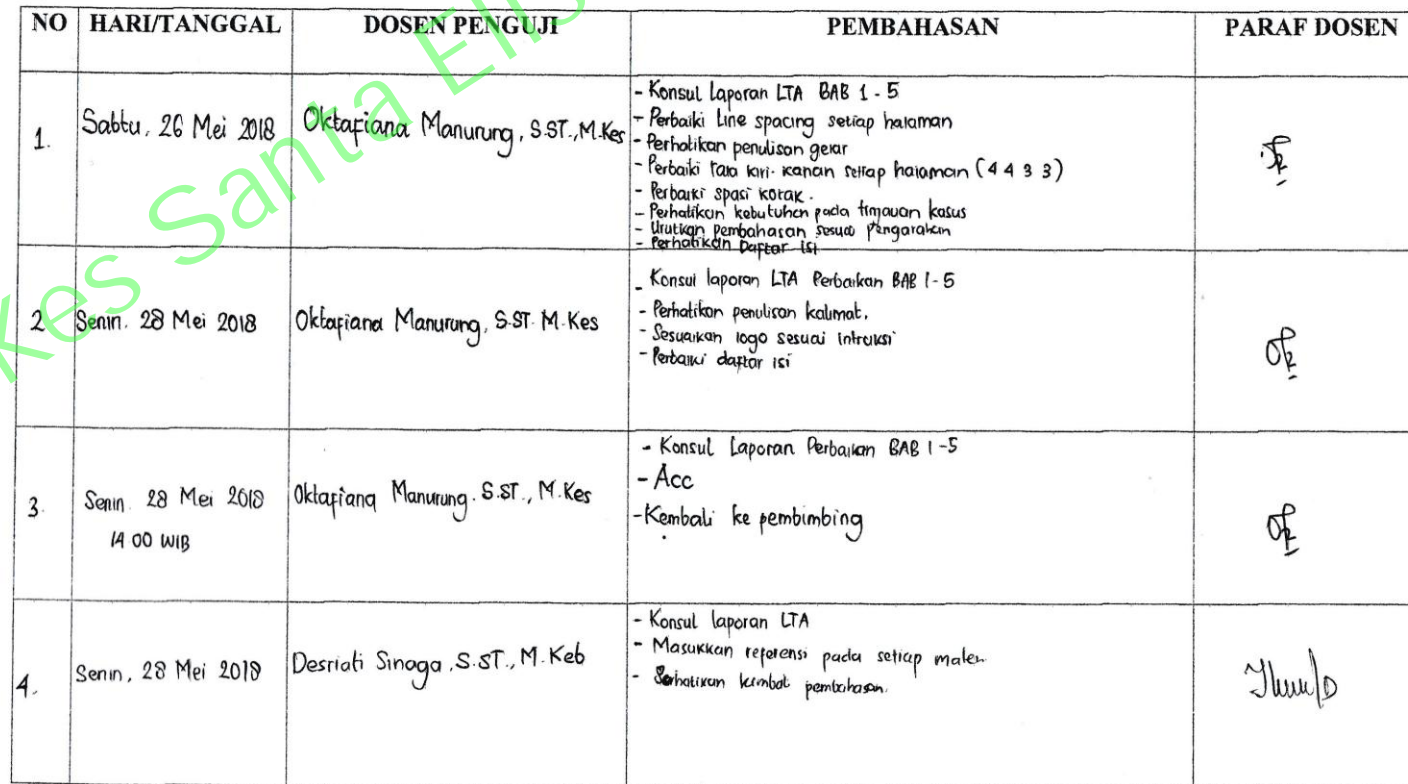 NO HARI/TANGGAL DOSEN PENGUJI PEMBAHASAN PARAF DOSEN
1. Sabtu, 26 Mei 2018 Oktafiana Manurung, S.ST., M.Kes
- Konsul Laporan LTA BAB 1 - 5
- Perbaiki Line spacing setiap halaman
- Perhatikan penulisan gelar
- Perbaiki rata kiri-kanan setiap halaman (4 4 3 3)
- Perbaiki spasi kotak.
- Perhatikan kebutuhan pada tinjauan kasus
- Urutkan pembahasan sesuai pengarahan
- Perhatikan Daftar isi
2 Senin. 28 Mei 2018 Oktafiana Manurung, S.ST. M.Kes
- Konsul laporan LTA Perbaikan BAB 1-5
- Perhatikan penulisan kalimat.
- Sesuaikan logo sesuai intruksi
- Perbaiki daftar isi
3. Senin. 28 Mei 2018 Oktafiana Manurung. S.ST., M.Kes
14 00 WIB
- Konsul Laporan Perbaikan BAB 1-5
- Acc
- Kembali ke pembimbing
4. Senin, 28 Mei 2018 Desriati Sinaga, S.ST., M.Keb
- Konsul laporan LTA
- Masukkan referensi pada setiap materi
- pembahasan.
kes Santa Elis